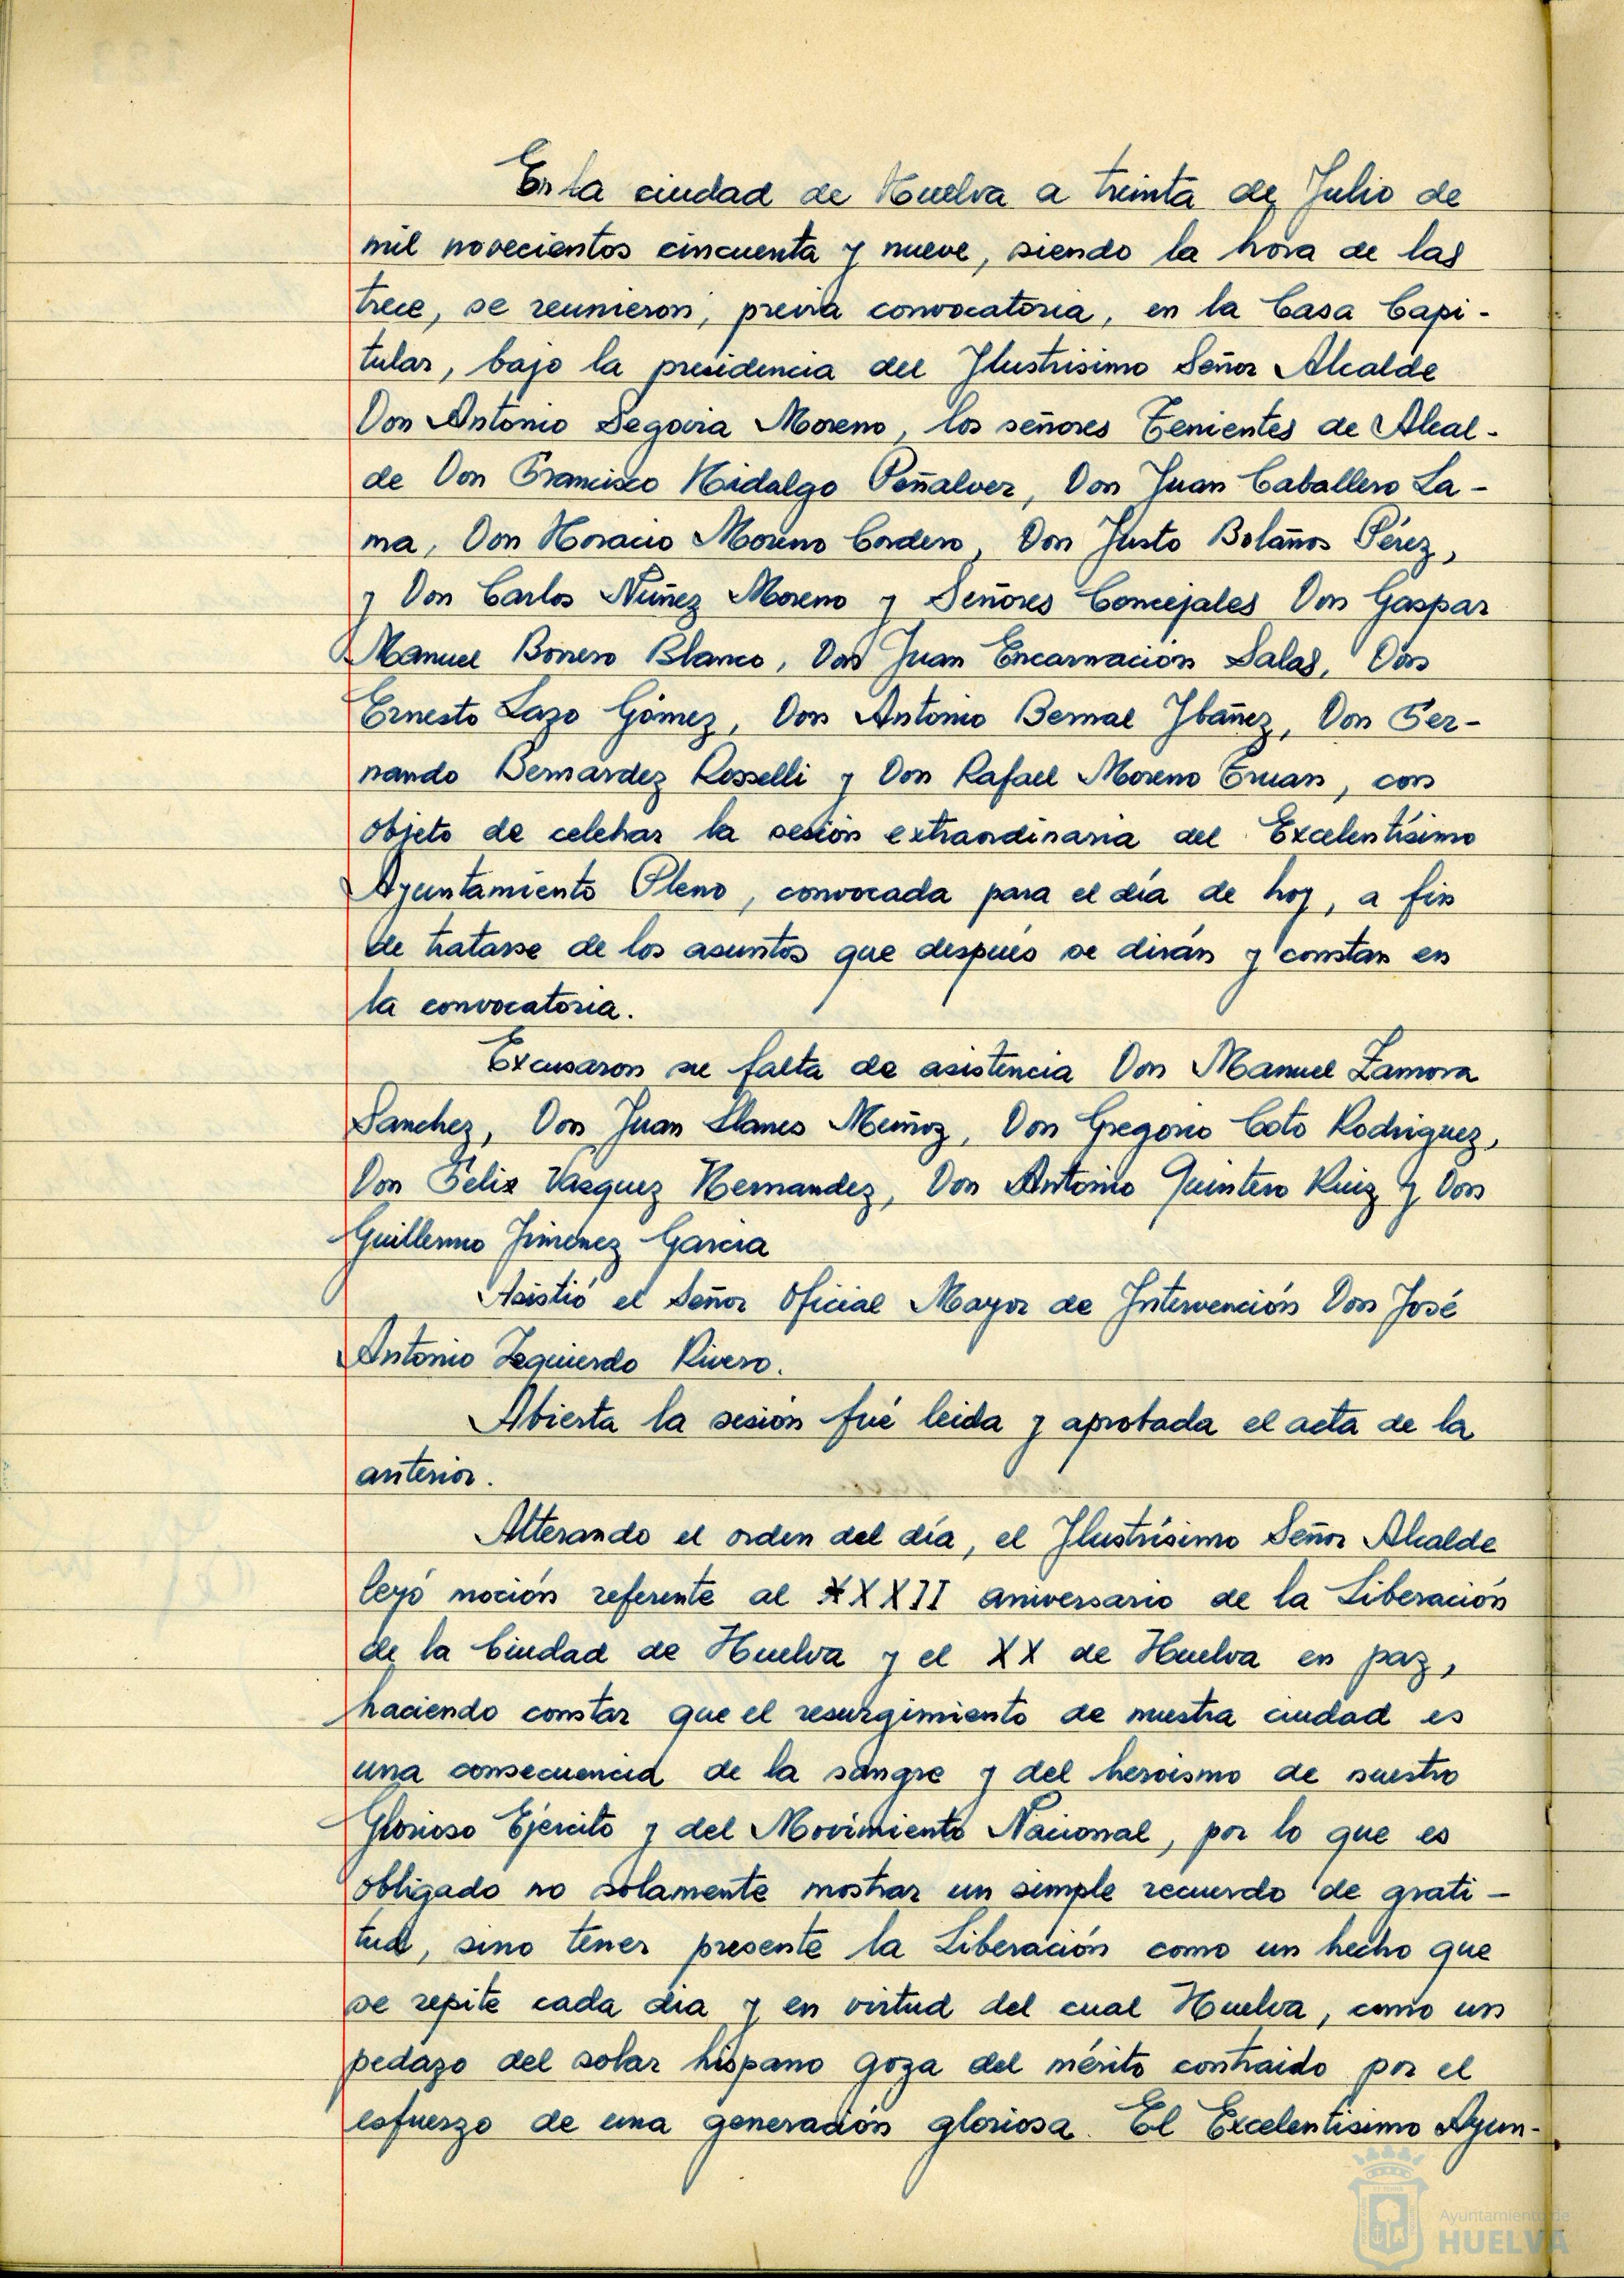 En la ciudad de Huelva a treinta de Julio de
mil novecientos cincuenta y nueve, siendo la hora de las
trece, se reunieron, previa convocatoria, en la Casa Capi-
tular, bajo la presidencia del Ilustrisimo Señor Alcalde
Don Antonio Segovia Moreno, los señores Tenientes de Alcal-
de Don Francisco Hidalgo Peñalver, Don Juan Caballero La-
ma, Don Horacio Moreno Cordero, Don Justo Bolaños Pérez,
y Don Carlos Núñez Moreno y Señores Concejales Don Gaspar
Manuel Borrero Blanco, Don Juan Encarnación Salas, Don
Ernesto Lazo Gómez, Don Antonio Bernal Ibáñez, Don Fer-
nando Bernardez Rosselli y Don Rafael Moreno Truan, con
objeto de celebrar la sesión extraordinaria del Excelentísimo
Ayuntamiento Pleno, convocada para el día de hoy, a fin
de tratarse de los asuntos que después se dirán y constan en
la convocatoria.
Excusaron su falta de asistencia Don Manuel Zamora
Sanchez, Don Juan Llanes Muñoz, Don Gregorio Coto Rodriguez,
Don Felix Vazquez Hernandez, Don Antonio Quintero Ruiz y Don
Guillermo Jimenez Garcia
Asistió el Señor Oficial Mayor de Intervención Don José
Antonio Izquierdo Rivero.
Abierta la sesión fué leida y aprobada el acta de la
anterior.
Alterando el orden del día, el Ilustrísimo Señor Alcalde
leyó moción referente al XXXII aniversario de la Liberación
de la Ciudad de Huelva y el XX de Huelva en paz,
haciendo constar que el resurgimiento de nuestra ciudad es
una consecuencia de la sangre y del heroismo de nuestro
Glorioso Ejército y del Movimiento Nacional, por lo que es
obligado no solamente mostrar un simple recuerdo de grati-
tud, sino tener presente la Liberación como un hecho que
se repite cada dia y en virtud del cual Huelva, como un
pedazo del solar hispano goza del mérito contraido por el
esfuerzo de una generación gloriosa. El Excelentisimo Ayun-
Ayuntamiento de
HUELVA